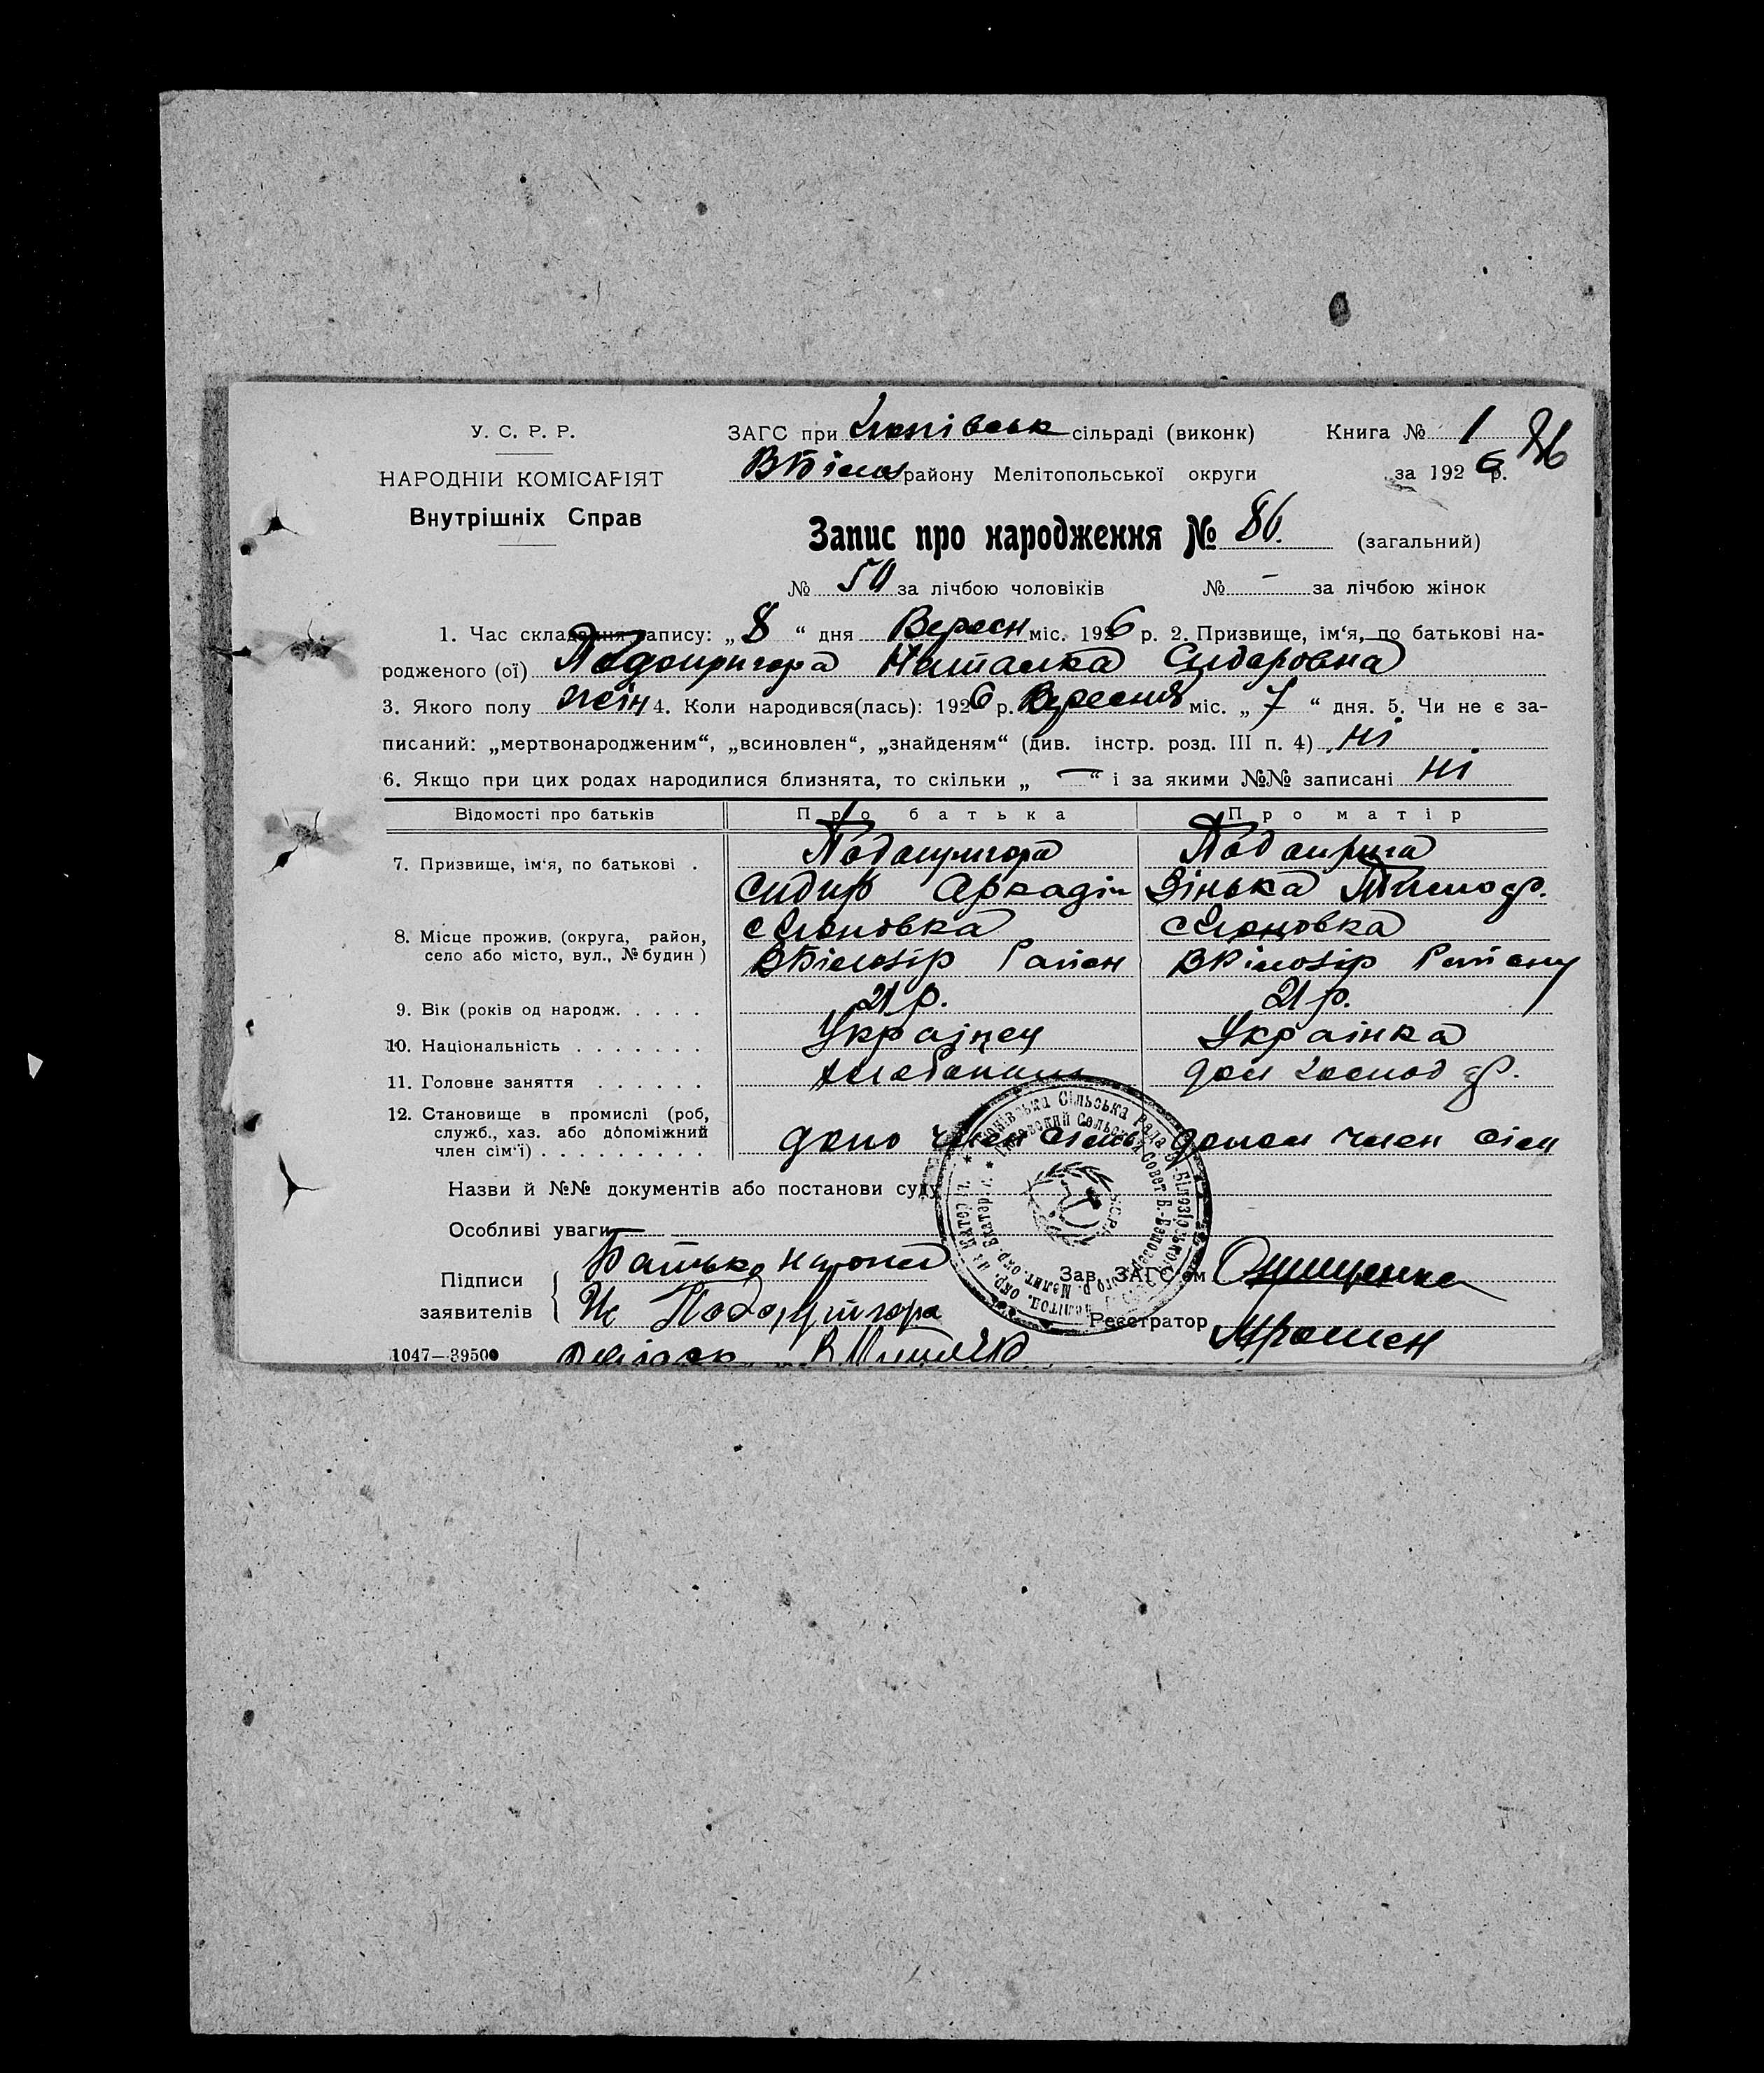 У. С. Р. Р.
НАРОДНІЙ КОМІСАРІЯТ
Внутрішніх Справ
ЗАГС при сільраді (виконк)
Книга № 1
В Білоз району Мелітопольської округи
за 1926 р.
Запис про народження № 86. (загальний)
№ 50 за лічбою чоловіків № – за лічбою жінок
1. Час складання запису: „ 8 “ дня Вересн міс. 1926 р. 2. Призвище, ім‘я, по батькові на-
родженого (ої) Подопригора Наталка Сидоровна
3. Якого полу жін 4. Коли народився(лась): 1926 р. Вересня міс. „ 7 “ дня. 5. Чи не є за-
писаний: „мертвонародженим“, „всиновлен“, „знайденям“ (див. інстр. розд. III п. 4) ні
6. Якщо при цих родах народилися близнята, то скільки „ — “ і за якими №№ записані ні
Відомості про батьків Про батька Про матір
7. Призвище, ім‘я, по батькові . Подопригора
Сидир Аркадів Зінька
8. Місце прожив. (округа, район,
село або місто, вул., № будин )
ВБілозір Район ВБілозір Району
9. Вік (років од народж. . . . . 21 р. 21 р.
10. Національність . . . . . . . Українец Українка
11. Головне заняття . . . . . . хлебопаш дом господар.
12. Становище в промислі (роб,
служб., хаз. або допоміжний
член сім‘ї) . . . . . . . . . допо член сімь допом член сім
Назви й №№ документів або постанови суду
Особливі уваги —
Підписи
заявителів
Батько
Подопригора
Зав. ЗАГС‘ом
Реєстратор
1047—39500